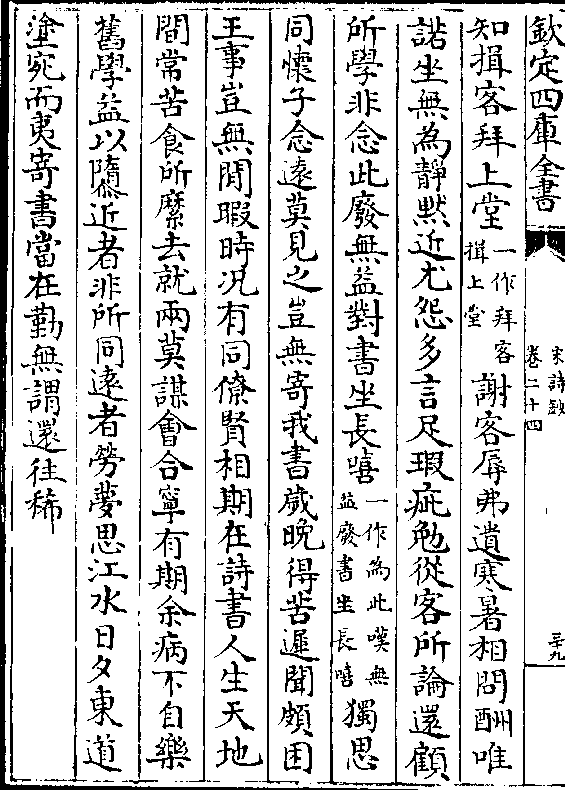 欽定四庫全書
宋詩鈔
卷二十四
三十九
知揖客拜上堂一作拜客揖上堂謝客辱弗遺寒暑相問酬唯
諾坐無為靜默近尤怨多言足瑕疵勉從客所論還顧
所學非念此廢無益對書坐長嘻一作為此嘆無益廢書坐長嘻獨思
同懷子念遠莫見之豈無寄我書歲晩得苦遲聞頗困
王事豈無閒暇時况有同僚賢相期在詩書人生天地
間常苦食所縻去就兩莫謀會合寧有期余病不自樂
舊學益以隳近者非所同遠者勞夢思江水日夕東道
塗宛而夷寄書當在勤無謂還往稀